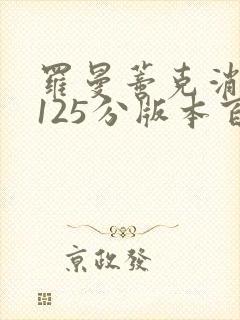 羅曼蒂克消
125分版本百
京政發